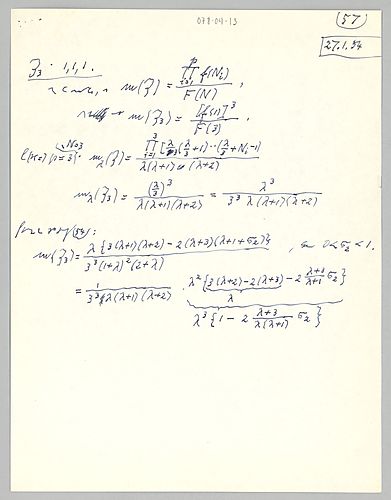 078-04-13
57
27.1.54
ζ₃ : 1,1,1.
m(ζ) = ∏_{i=1}^{p} f(N_i) / F(N) ,
m(ζ₃) = [f(1)]³ / F(3) ,
m_λ(ζ) = ∏_{i=1}^{3} [λ/3 (λ/3+1)⋯(λ/3+N_i-1)] / λ(λ+1)(λ+2)
m_λ(ζ₃) = (λ/3)³ / λ(λ+1)(λ+2) = λ³ / 3³ λ(λ+1)(λ+2)
m(ζ₃) = λ{3(λ+1)(λ+2) - 2(λ+3)(λ+1+σ₂)} / 3³(1+λ)²(2+λ) , 0<σ₂<1.
= 1 / 3³ λ(λ+1)(λ+2) · λ²{3(λ+2)-2(λ+3)-2 λ+3/λ+1 σ₂}
λ
λ³{1-2 λ+3/λ(λ+1) σ₂}